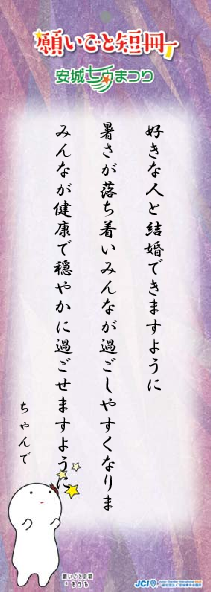 願いごと短冊
安城七夕まつり
好きな人と結婚できますように
暑さが落ち着いみんなが過ごしやすくなりま
みんなが健康で穏やかに過ごせますように
ちゃんで
JCI